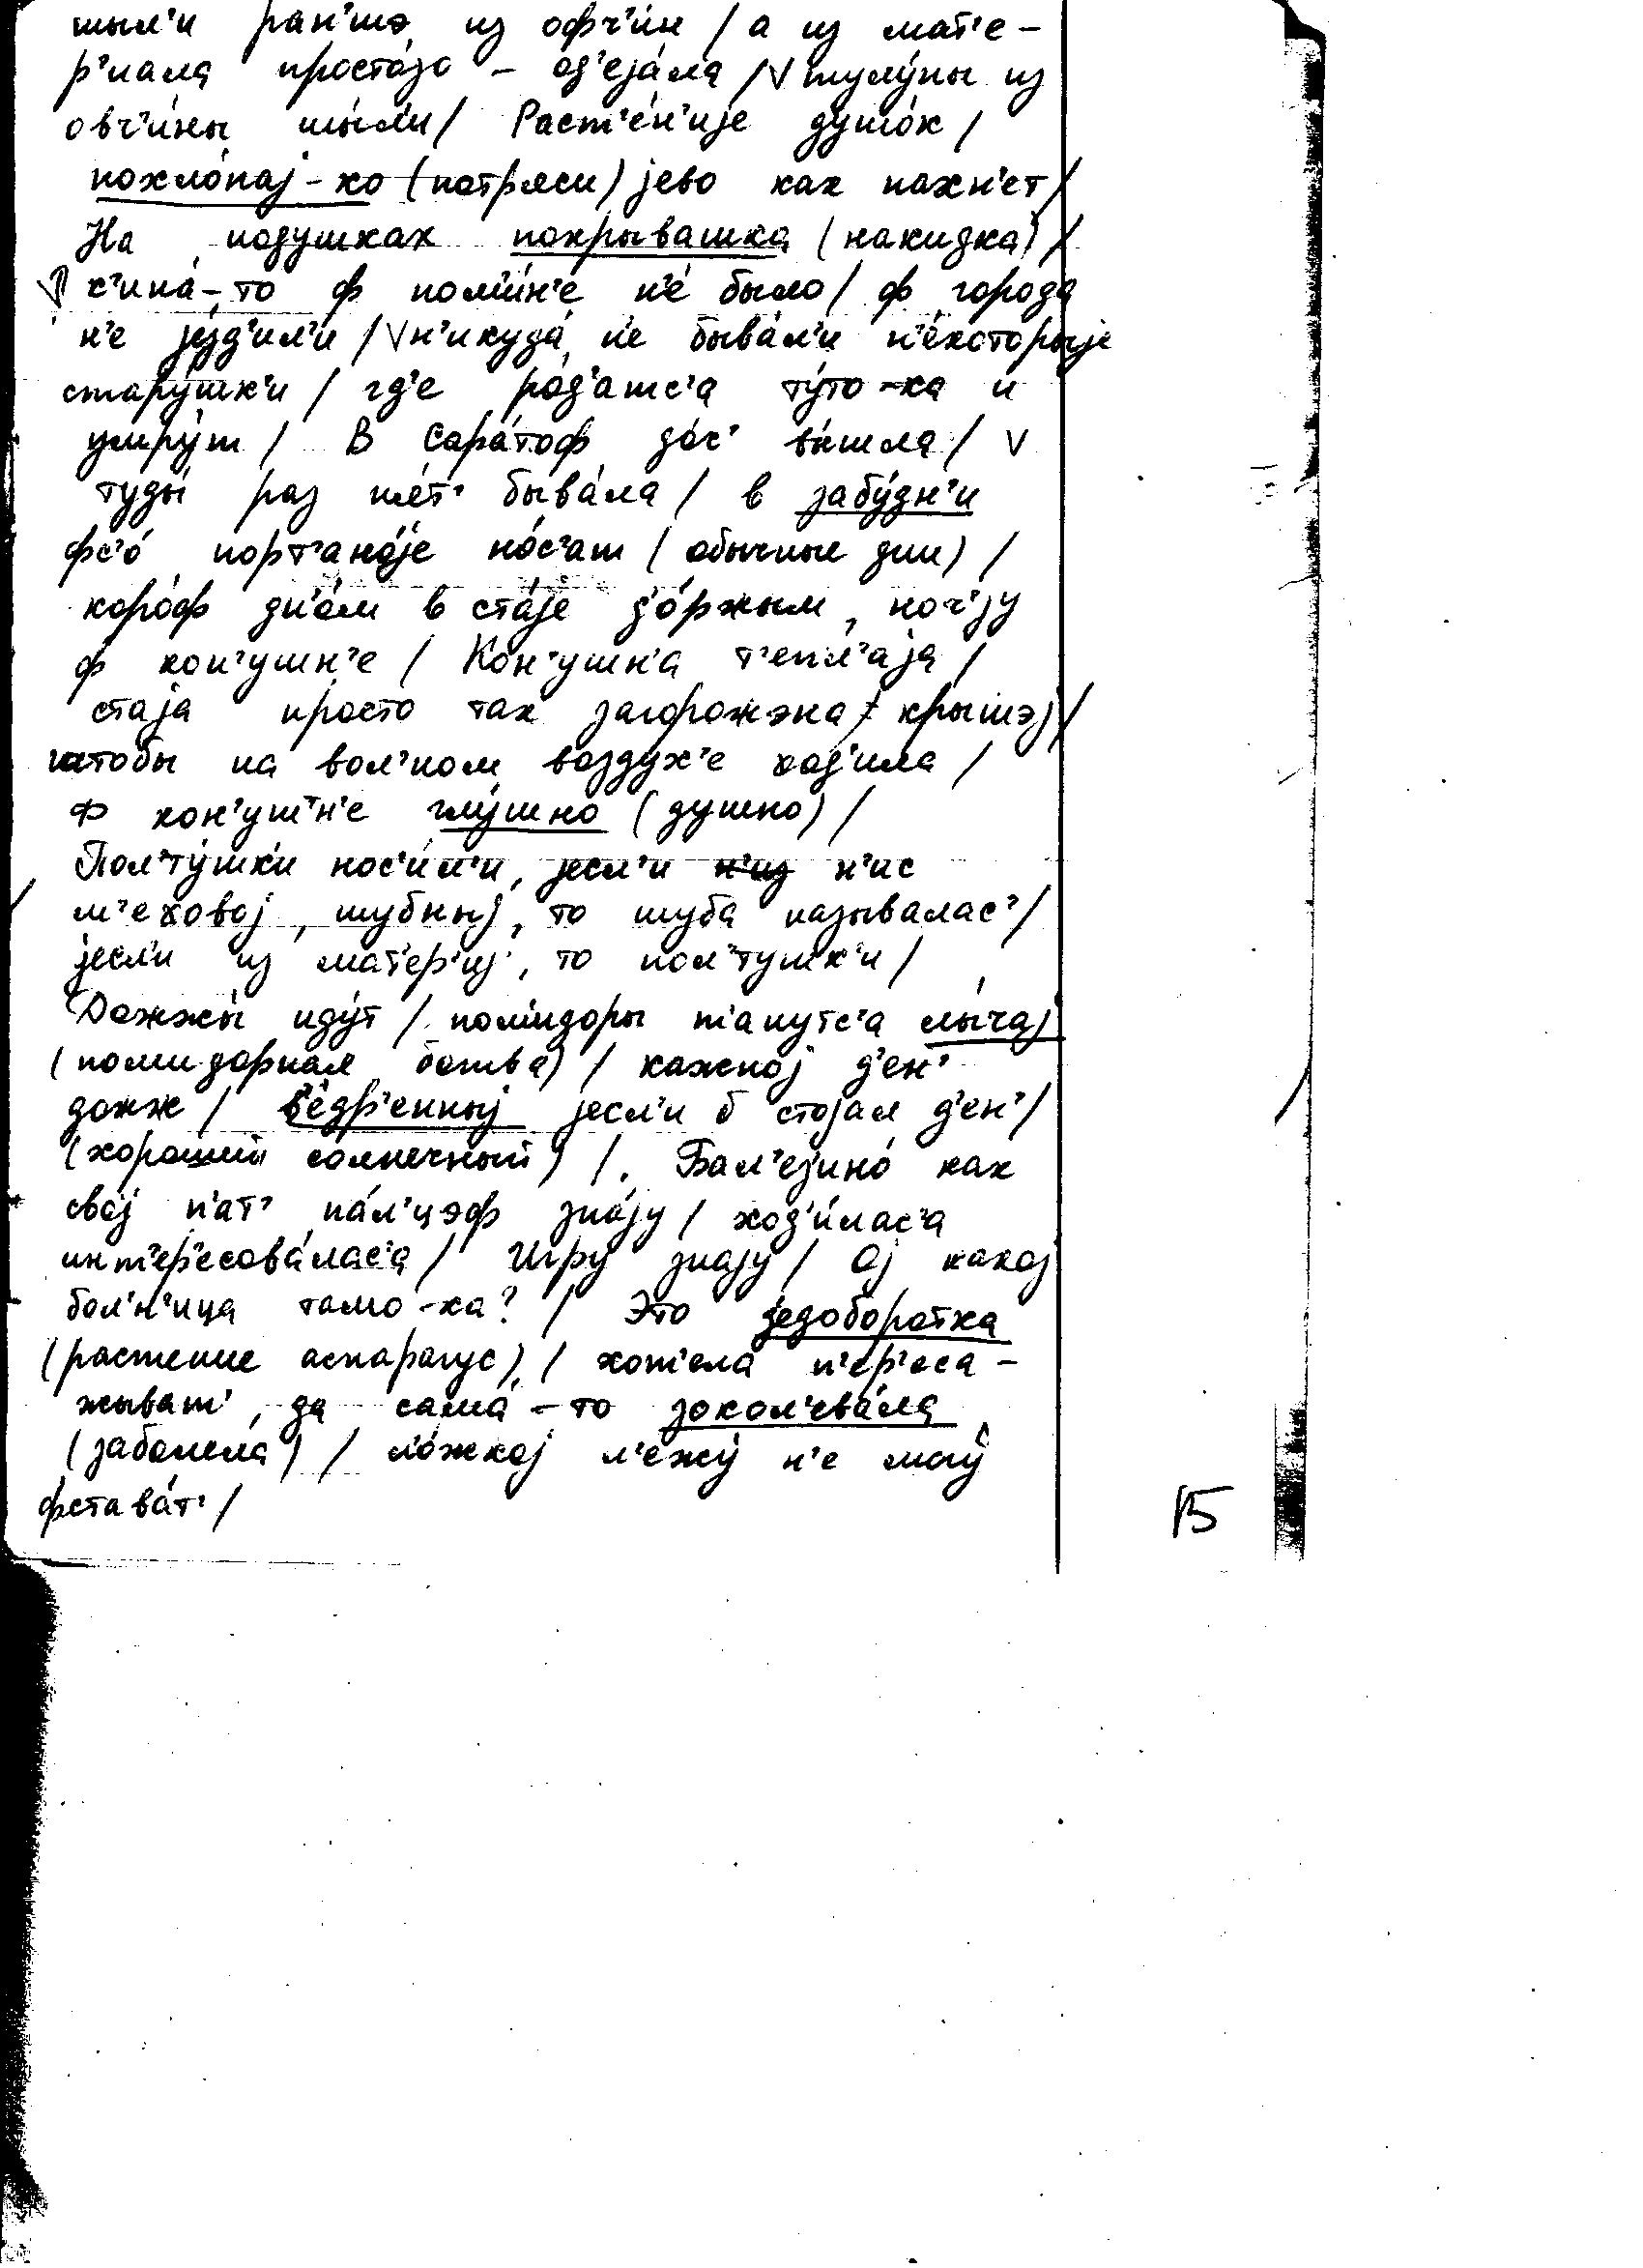 шыл'и ран'шэ из офч'ин / а из мат'е-
р'иала простојо – од'еја́ла /V тулу́пы из
овч'и́ны шы́ли / Раст'е́н'ије душо́к /
похло́пај-ко (потряси) јево как пахн'ет /
На подушках покрывашка (накидка) /
к'ина́-то ф пом'и́н'е н'е́ было / ф города
н'е је́зд'ил'и / V н'икуда́ н'е быва́л'и н'е́которыје
стару́шк'и / гд'е ро́д'атс'а ту́то-ка и
умру́т / В Сара́тоф до́ч' вы́шла / V
туды́ раз п'а́т' быва́ла / в забу́дн'и
фс'о́ порт'ано́је но́с'ат (обычные дни) /
коро́ф дн'о́м в ста́је д'о́ржым, ноч'ју
ф кон'ушн'е / Кон'ушн'а т'епл'аја /
стаја просто так загорожэна, крышэј /
штобы на вол'ном воздух'е ход'ила /
Ф кон'ушн'е глу́шно (душно) /
Пол'ту́шк'и нос'и́л'и, јесл'и н'из н'ис
м'еховој, шубныј, то шуба называлас' /
јесл'и из мат'ер'иј, то пол'тушк'и /
Дожжы́ иду́т / пом'идоры т'анутс'а лы́чај
(помидорная ботва) / кажной д'ен'
дожж / в'о́др'енныј јесл'и б стојал д'ен' /
(хороший солнечный) /. Бал'езино́ как
свој п'ат' па́л'цэф зна́ју / ход'и́лас'а
инт'ер'есова́лас'а / Игру знају / Ој какој
бол'н'ица тамо-ка? / Это једоборотка
(растение аспарагус) / хот'ела п'ер'еса-
жыват', да сама́-то зокол'ева́ла
(заболела) / ло́жкој л'ежу́ н'е могу́
фстава́т' /
15